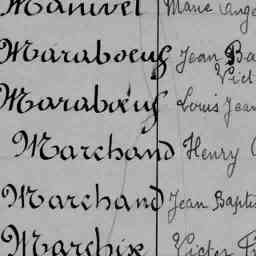 Manivel Marie Ang
Maraboeuf Jean Ba
Vict
Marabœuf Louis Jean
Marchand Henry
Marchand Jean Baptis
Marchix Victor